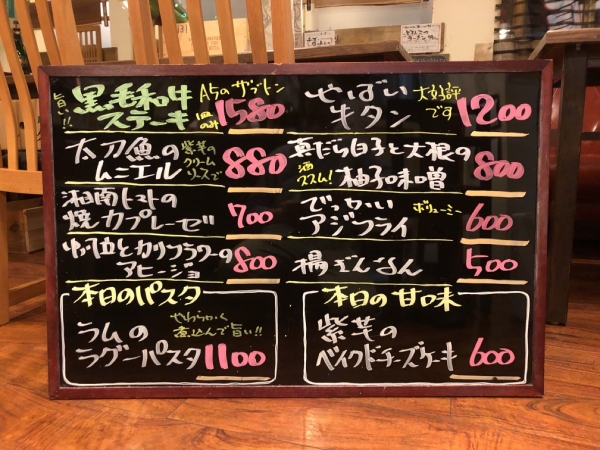 旨い!!
黒毛和牛
ステーキ
A5のザブトン
1皿のみ
1580
太刀魚の
ムニエル
紫芋の
クリーム
ソースで
880
湘南トマトの
焼カプレーゼ
700
カリフラワーの
アヒージョ
800
本日のパスタ
ラムの
ラグーパスタ
やわらかく
煮込んで旨い!!
1100
やばい
牛タン
大好評
です
1200
真だら白子と大根の
柚子味噌
酒
ススム!
800
でっかい
アジフライ
ボリューミー
600
揚ぎんなん
500
本日の甘味
紫芋の
ベイクドチーズケーキ
600